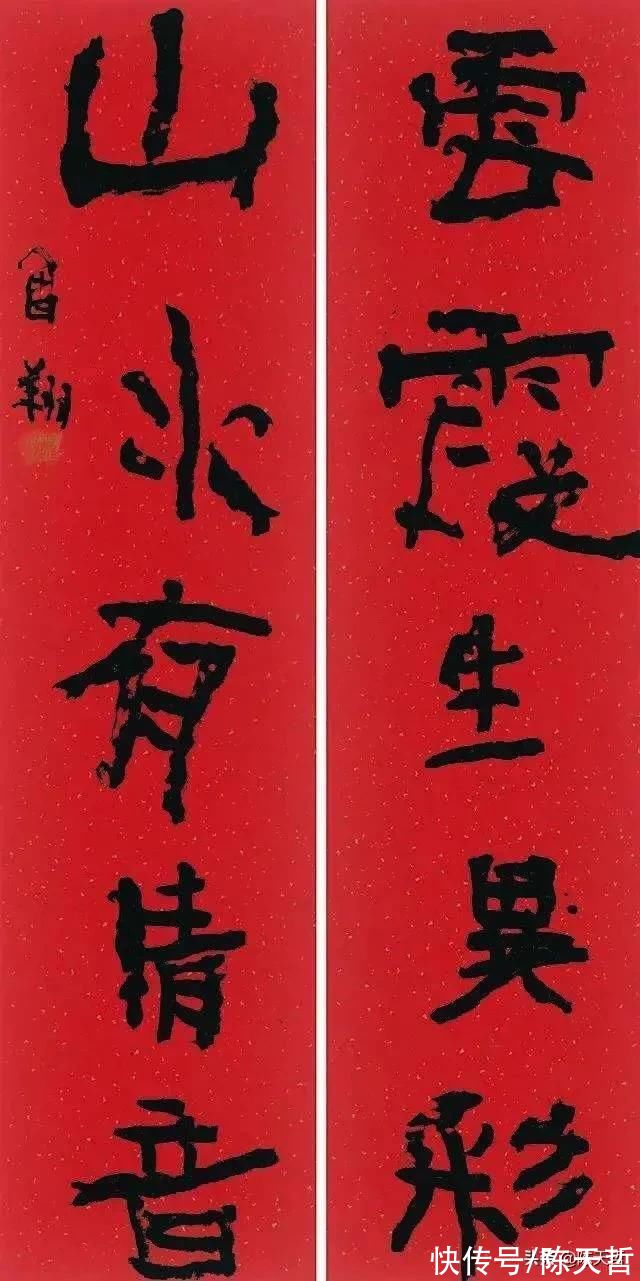 雲霞生異彩
山水有清音
曾翔
快传号/陈天哲